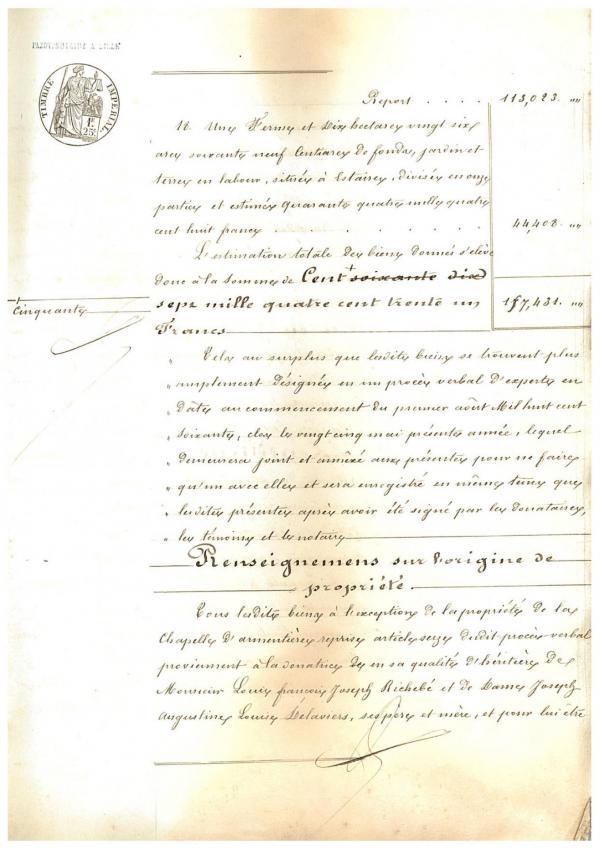 PAJOT, NOTAIRE A LILLE
TIMBRE IMPÉRIAL
1F.
25C.
Report . . . . 113,023. "
12. Une Ferme et Dix hectares vingt six
ares soixante neuf Centiares de fonds, jardin et
terres en labour, situées à Estaires, divisée en onze
parties et estimée Quarante quatre mille quatre
cent huit francs . . . . . . . . 44,408 "
L'estimation totale des biens donnés s'élève
donc à la somme de Cent + soixante dix
Cinquante
sept mille quatre cent trente un 157,431. "
Francs
" Tels au surplus que lesdits biens se trouvent plus
" amplement désignés en un procès verbal d'experts en
" date au commencement du premier août Mil huit cent
" soixante, clos le vingt cinq mai présente année, lequel
" demeurera joint et annéxé aux présentes pour ne faire
" qu'un avec elles et sera enregistré en même temps que
" lesdites présentes après avoir été signé par les donataires,
" les témoins et le notaire
Renseignemens sur l'origine de
propriété.
Tous lesdits biens à l'exception de la propriété de la
Chapelle d'armentières reprise article seize dudit procès verbal
proviennent à la donatrice de en sa qualité d'héritière de
Monsieur Louis françois Joseph Richebé et de Dame Joseph
Augustine Louise Delaviers, ses père et mère, et pour lui être